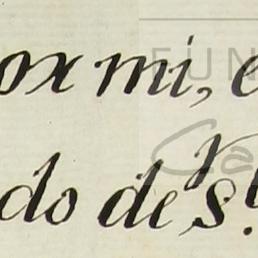 ox mi, e
do de S.